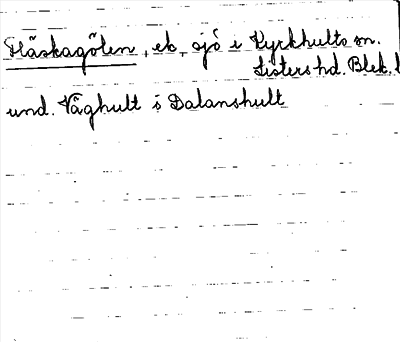 Fläskagölen, ek, sjö i Kyrkhults sn.
Listers hd. Blek. l
und. Våghult o Dalanshult